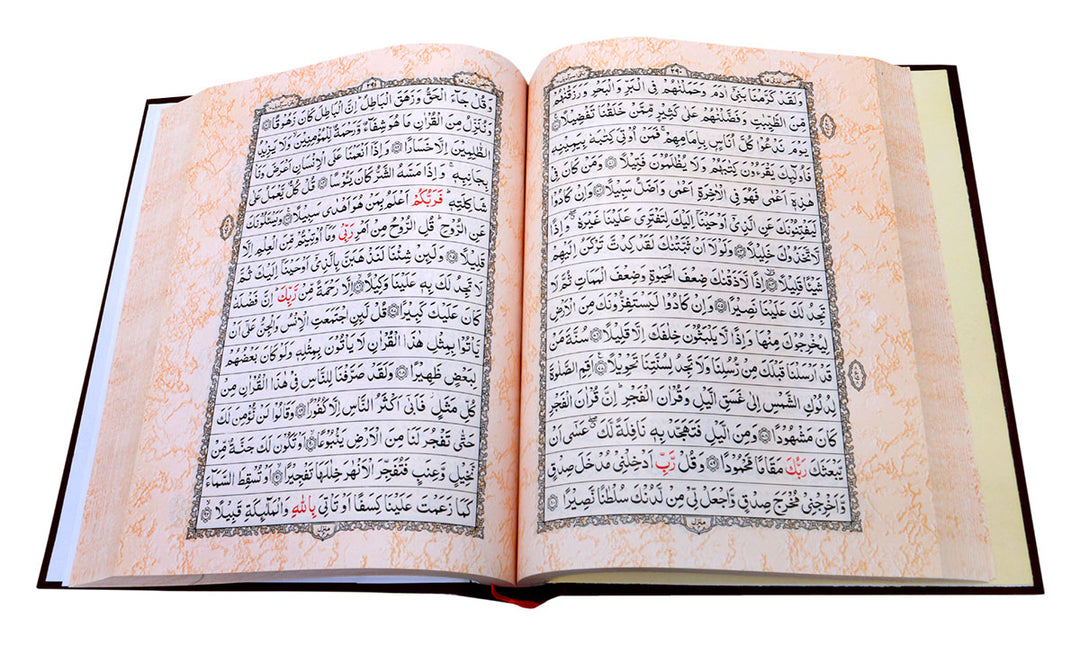 ٢٩٠
وَلَقَدْ كَرَّمْنَا بَنِيْٓ اٰدَمَ وَحَمَلْنٰهُمْ فِى الْبَرِّ وَالْبَحْرِ وَرَزَقْنٰهُمْ
مِّنَ الطَّيِّبٰتِ وَفَضَّلْنٰهُمْ عَلٰى كَثِيْرٍ مِّمَّنْ خَلَقْنَا تَفْضِيْلًا
يَوْمَ نَدْعُوْا كُلَّ اُنَاسٍۢ بِاِمَامِهِمْ ۚ فَمَنْ اُوْتِيَ كِتٰبَهٗ بِيَمِيْنِهٖ
فَاُولٰٓئِكَ يَقْرَءُوْنَ كِتٰبَهُمْ وَلَا يُظْلَمُوْنَ فَتِيْلًا وَمَنْ كَانَ فِيْ
هٰذِهٖٓ اَعْمٰى فَهُوَ فِى الْاٰخِرَةِ اَعْمٰى وَاَضَلُّ سَبِيْلًا وَاِنْ كَادُوْا
لَيَفْتِنُوْنَكَ عَنِ الَّذِيْٓ اَوْحَيْنَآ اِلَيْكَ لِتَفْتَرِيَ عَلَيْنَا غَيْرَهٗ ۖ وَاِذًا
لَّاتَّخَذُوْكَ خَلِيْلًا وَلَوْلَآ اَنْ ثَبَّتْنٰكَ لَقَدْ كِدْتَّ تَرْكَنُ اِلَيْهِمْ
شَيْئًا قَلِيْلًا اِذًا لَّاَذَقْنٰكَ ضِعْفَ الْحَيٰوةِ وَضِعْفَ الْمَمَاتِ ثُمَّ لَا
تَجِدُ لَكَ عَلَيْنَا نَصِيْرًا وَاِنْ كَادُوْا لَيَسْتَفِزُّوْنَكَ مِنَ الْاَرْضِ
لِيُخْرِجُوْكَ مِنْهَا وَاِذًا لَّا يَلْبَثُوْنَ خِلٰفَكَ اِلَّا قَلِيْلًا سُنَّةَ مَنْ
قَدْ اَرْسَلْنَا قَبْلَكَ مِنْ رُّسُلِنَا وَلَا تَجِدُ لِسُنَّتِنَا تَحْوِيْلًا اَقِمِ الصَّلٰوةَ
لِدُلُوْكِ الشَّمْسِ اِلٰى غَسَقِ الَّيْلِ وَقُرْاٰنَ الْفَجْرِ ؕ اِنَّ قُرْاٰنَ الْفَجْرِ
كَانَ مَشْهُوْدًا وَمِنَ الَّيْلِ فَتَهَجَّدْ بِهٖ نَافِلَةً لَّكَ ۖ عَسٰٓى اَنْ
يَّبْعَثَكَ رَبُّكَ مَقَامًا مَّحْمُوْدًا وَقُلْ رَّبِّ اَدْخِلْنِيْ مُدْخَلَ صِدْقٍ
وَّاَخْرِجْنِيْ مُخْرَجَ صِدْقٍ وَّاجْعَلْ لِّيْ مِنْ لَّدُنْكَ سُلْطٰنًا نَّصِيْرًا
٢٩١
وَقُلْ جَآءَ الْحَقُّ وَزَهَقَ الْبَاطِلُ ؕ اِنَّ الْبَاطِلَ كَانَ زَهُوْقًا
وَنُنَزِّلُ مِنَ الْقُرْاٰنِ مَا هُوَ شِفَآءٌ وَّرَحْمَةٌ لِّلْمُؤْمِنِيْنَ ۙ وَلَا يَزِيْدُ
الظّٰلِمِيْنَ اِلَّا خَسَارًا وَاِذَآ اَنْعَمْنَا عَلَى الْاِنْسَانِ اَعْرَضَ وَنَاٰ
بِجَانِبِهٖ ۚ وَاِذَا مَسَّهُ الشَّرُّ كَانَ يَئُوْسًا قُلْ كُلٌّ يَّعْمَلُ عَلٰى
شَاكِلَتِهٖ ؕ فَرَبُّكُمْ اَعْلَمُ بِمَنْ هُوَ اَهْدٰى سَبِيْلًا وَيَسْئَلُوْنَكَ
عَنِ الرُّوْحِ ؕ قُلِ الرُّوْحُ مِنْ اَمْرِ رَبِّيْ وَمَآ اُوْتِيْتُمْ مِّنَ الْعِلْمِ اِلَّا
قَلِيْلًا وَلَئِنْ شِئْنَا لَنَذْهَبَنَّ بِالَّذِيْٓ اَوْحَيْنَآ اِلَيْكَ ثُمَّ
لَا تَجِدُ لَكَ بِهٖ عَلَيْنَا وَكِيْلًا اِلَّا رَحْمَةً مِّنْ رَّبِّكَ ؕ اِنَّ فَضْلَهٗ
كَانَ عَلَيْكَ كَبِيْرًا قُلْ لَّئِنِ اجْتَمَعَتِ الْاِنْسُ وَالْجِنُّ عَلٰٓى اَنْ
يَّاْتُوْا بِمِثْلِ هٰذَا الْقُرْاٰنِ لَا يَاْتُوْنَ بِمِثْلِهٖ وَلَوْ كَانَ بَعْضُهُمْ
لِبَعْضٍ ظَهِيْرًا وَلَقَدْ صَرَّفْنَا لِلنَّاسِ فِيْ هٰذَا الْقُرْاٰنِ مِنْ
كُلِّ مَثَلٍ فَاَبٰٓى اَكْثَرُ النَّاسِ اِلَّا كُفُوْرًا وَقَالُوْا لَنْ نُّؤْمِنَ لَكَ
حَتّٰى تَفْجُرَ لَنَا مِنَ الْاَرْضِ يَنْۢبُوْعًا اَوْ تَكُوْنَ لَكَ جَنَّةٌ مِّنْ
نَّخِيْلٍ وَّعِنَبٍ فَتُفَجِّرَ الْاَنْهٰرَ خِلٰلَهَا تَفْجِيْرًا اَوْ تُسْقِطَ السَّمَآءَ
كَمَا زَعَمْتَ عَلَيْنَا كِسَفًا اَوْ تَاْتِيَ بِاللّٰهِ وَالْمَلٰٓئِكَةِ قَبِيْلًا